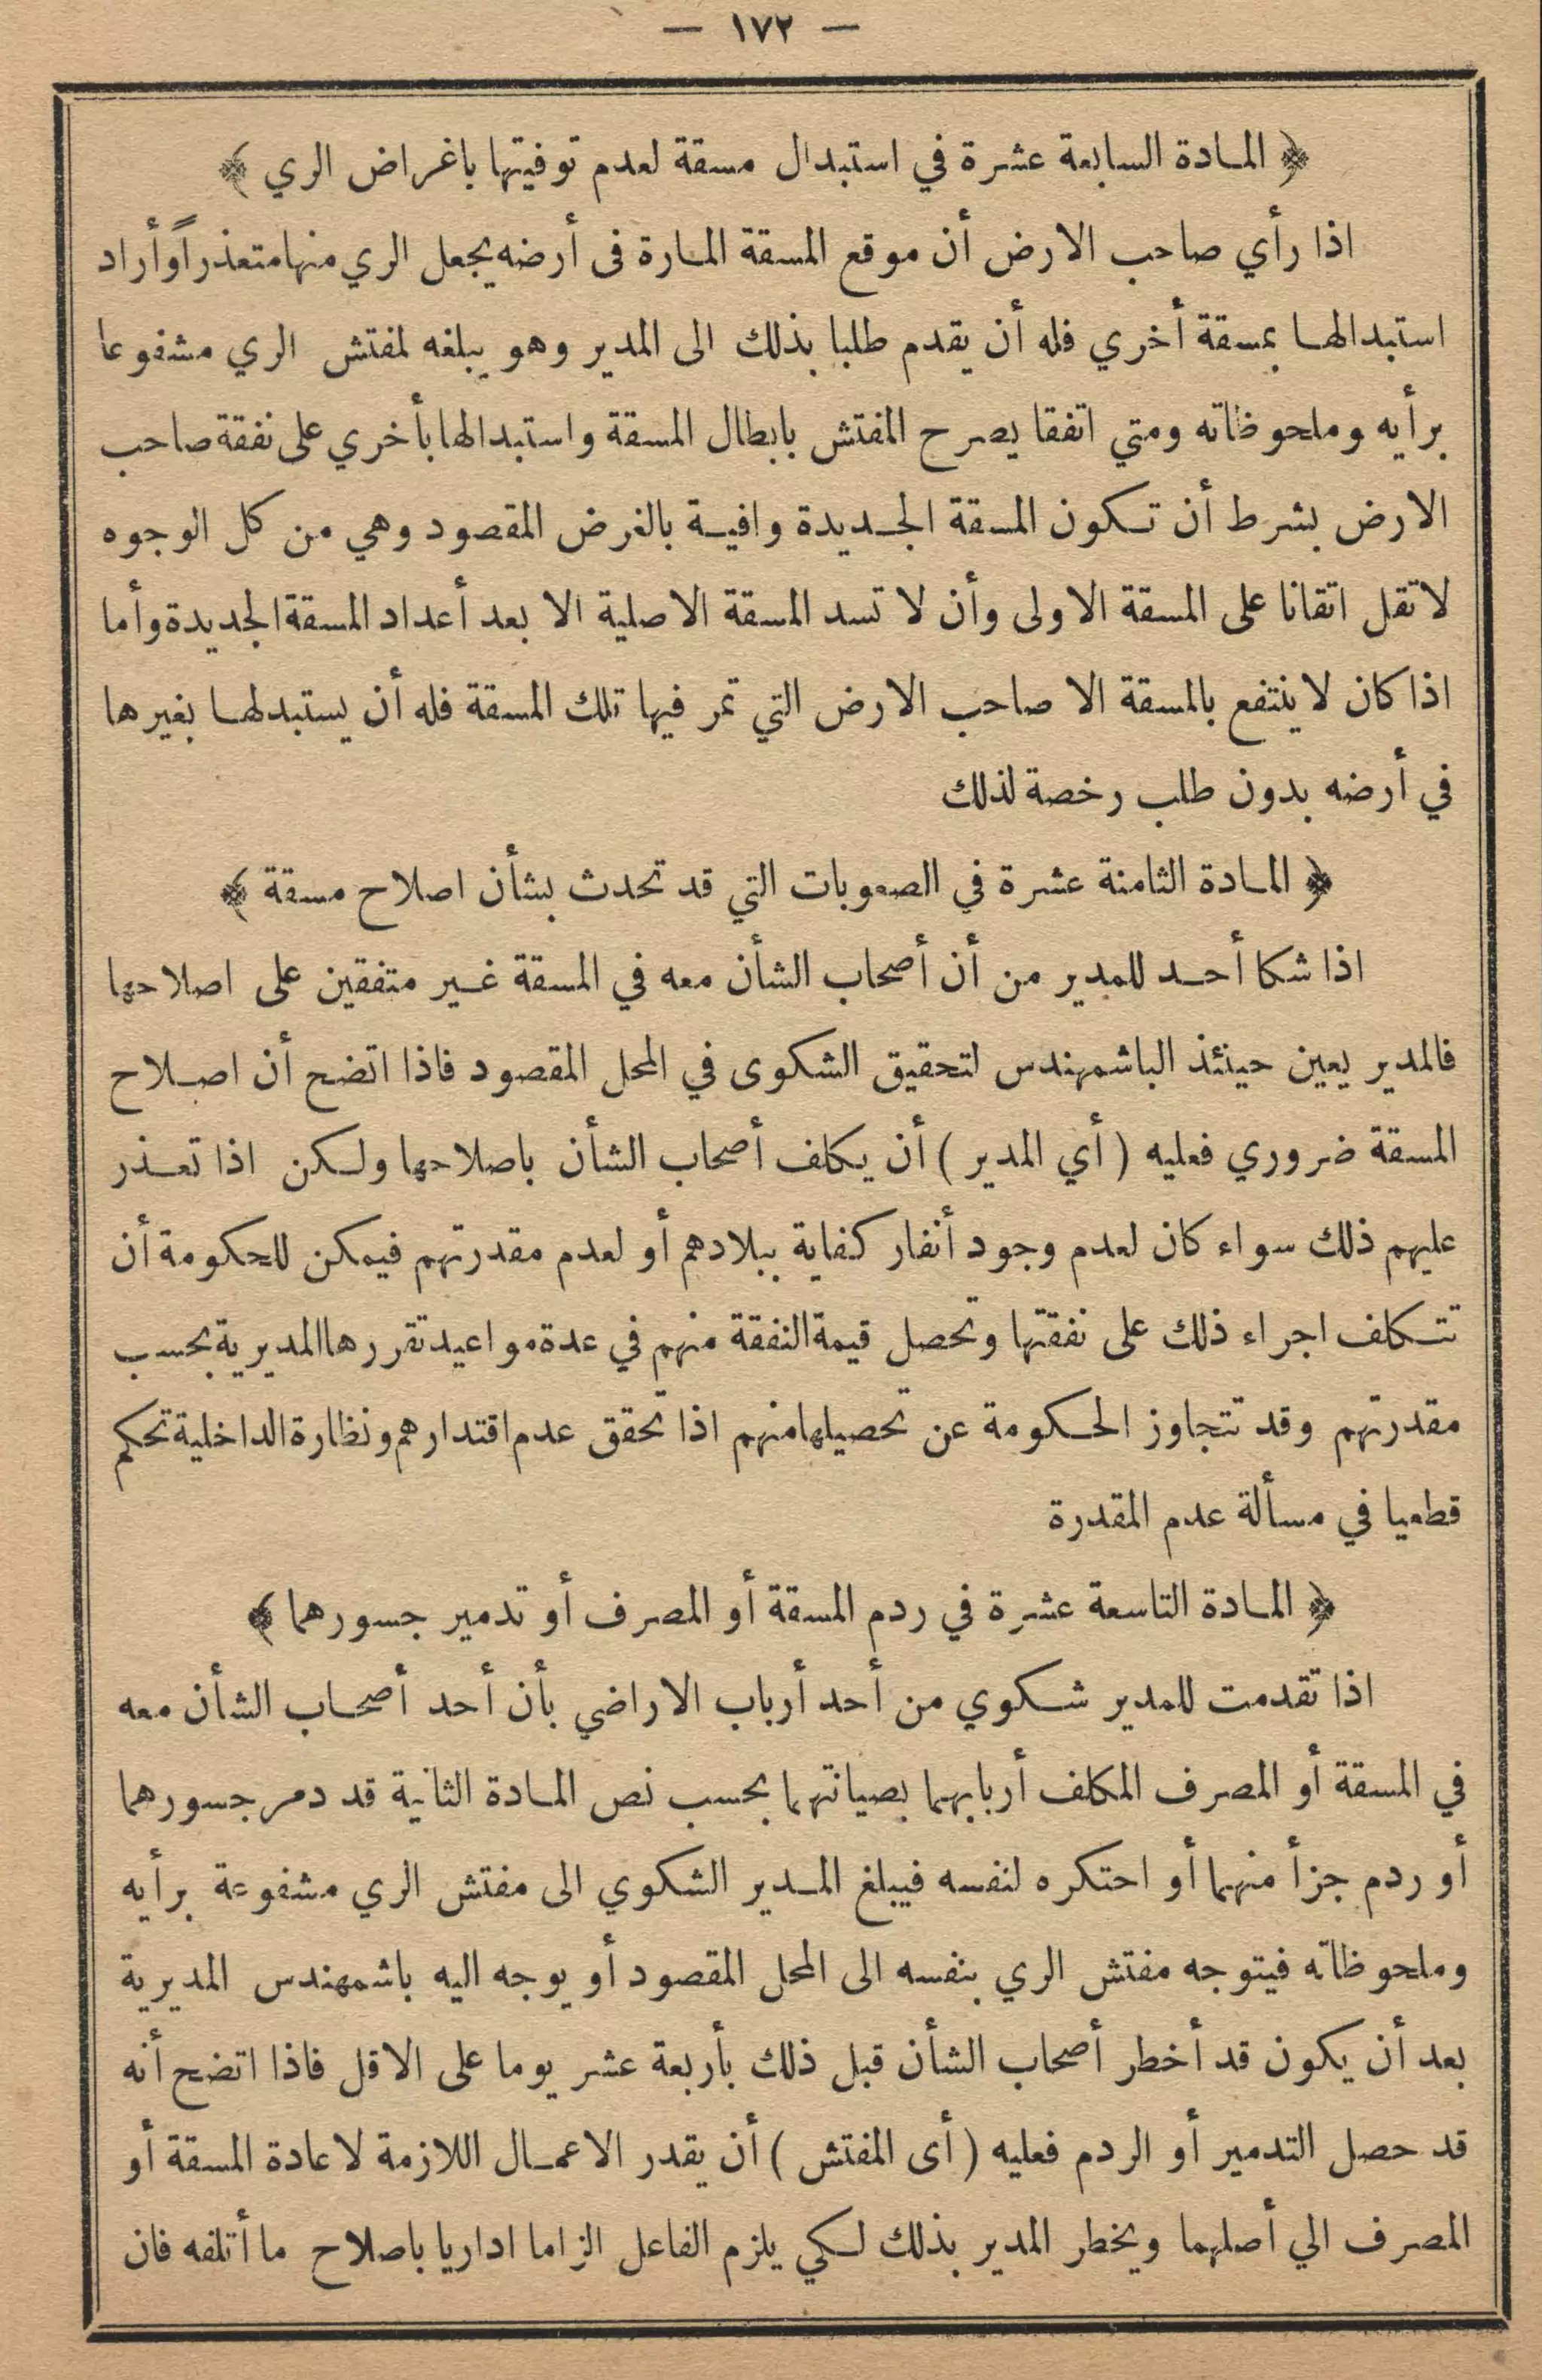 — ١٧٢ —
﴿ المادة السابعة عشرة في استبدال مسقة لعدم توفيتها باغراض الري ﴾
اذا رأي صاحب الارض أن موقع المسقة المارة فى أرضه يجعل الري منها متعذراً وأراد
استبدالها بمسقة أخري فله أن يقدم طلبا بذلك الى المدير وهو يبلغه لمفتش الري مشفوعا
برأيه وملحوظاته ومتي اتفقا يصرح المفتش بابطال المسقة واستبدالها بأخري على نفقة صاحب
الارض بشرط أن تكون المسقة الجديدة وافية بالغرض المقصود وهي من كل الوجوه
لا تقل اتقانا على المسقة الاولى وأن لا تسد المسقة الاصلية الا بعد أعداد المسقة الجديدة وأما
اذا كان لا ينتفع بالمسقة الا صاحب الارض التي تمر فيها تلك المسقة فله أن يستبدلها بغيرها
في أرضه بدون طلب رخصة لذلك
﴿ المادة الثامنة عشرة في الصعوبات التي قد تحدث بشأن اصلاح مسقة ﴾
اذا شكا أحد للمدير من أن أصحاب الشأن معه في المسقة غير متفقين على اصلاحها
فالمدير يعين حينئذ الباشمهندس لتحقيق الشكوى في المحل المقصود فاذا اتضح أن اصلاح
المسقة ضروري فعليه ( أي المدير ) أن يكلف أصحاب الشأن باصلاحها ولكن اذا تعذر
عليهم ذلك سواء كان لعدم وجود أنفار كفاية ببلادهم أو لعدم مقدرتهم فيمكن للحكومة أن
تتكلف اجراء ذلك على نفقتها وتحصل قيمة النفقة منهم في عدة مواعيد تقررها المديرية بحسب
مقدرتهم وقد تتجاوز الحكومة عن تحصيلها منهم اذا تحقق عدم اقتدارهم ونظارة الداخلية تحكم
قطعيا في مسألة عدم المقدرة
﴿ المادة التاسعة عشرة في ردم المسقة أو المصرف أو تدمير جسورهما ﴾
اذا تقدمت للمدير شكوي من أحد أرباب الاراضي بأن أحد أصحاب الشأن معه
في المسقة أو المصرف المكلف أربابهما بصيانتهما بحسب نص المادة الثانية قد دمر جسورهما
أو ردم جزأ منهما أو احتكره لنفسه فيبلغ المدير الشكوي الى مفتش الري مشفوعة برأيه
وملحوظاته فيتوجه مفتش الري بنفسه الى المحل المقصود أو يوجه اليه باشمهندس المديرية
بعد أن يكون قد أخطر أصحاب الشأن قبل ذلك بأربعة عشر يوما على الاقل فاذا اتضح أنه
قد حصل التدمير أو الردم فعليه ( أى المفتش ) أن يقدر الاعمال اللازمة لاعادة المسقة أو
المصرف الي أصلهما ويخطر المدير بذلك لكي يلزم الفاعل الزاما اداريا باصلاح ما أتلفه فان